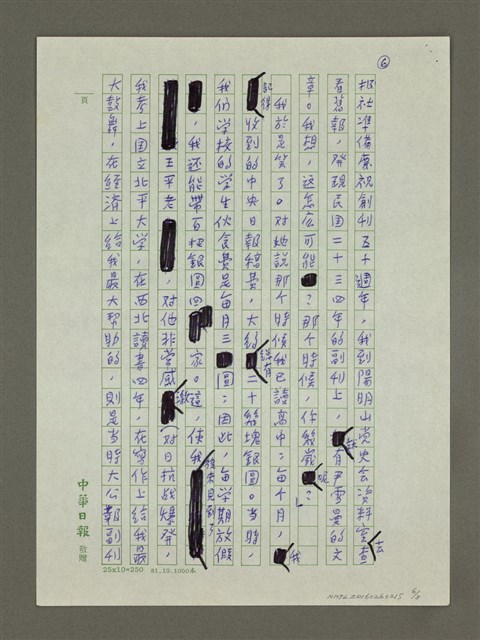 ⑥
報社準備慶祝創刊五十週年，我到陽明山党史会資料室去查
看舊報，發現民国二十三四年的副刊上，就有尹雪曼的文
章。我想，这怎么可能？那个時候，你幾歲呢？」
我於是笑了。对她說那个時候我已讀高中；每个月，我
記得收到的中央日報稿費，大約該有二十幾塊銀圓。当時，
我们学校的学生伙食費是每月三圓；因此，每学期放假
，我还能帶百把銀圓回家。這，使我後來見到了
王平老，对他非常感激。对日抗战爆發，
我考上国立北平大学，在西北讀書四年，在寫作上給我最
大鼓舞，在经濟上給我最大帮助的，則是当時大公報副刊
頁
中華日報
敬贈
25x10=250 81.10.1000本
NMTL20160260215 6/8